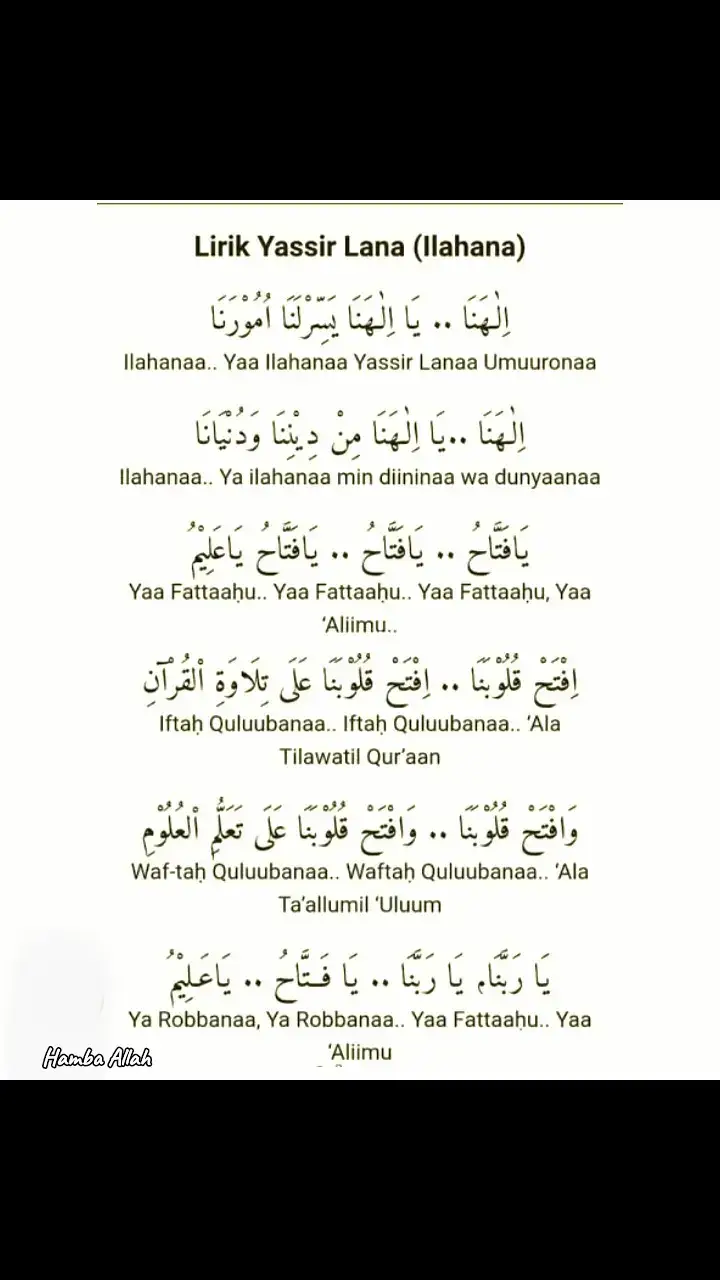 Lirik Yassir Lana (Ilahana)
اِلٰهَنَا .. يَا اِلٰهَنَا يَسِّرْلَنَا اُمُوْرَنَا
Ilahanaa.. Yaa Ilahanaa Yassir Lanaa Umuuronaa
اِلٰهَنَا ..يَا اِلٰهَنَا مِنْ دِيْنِنَا وَدُنْيَانَا
Ilahanaa.. Ya ilahanaa min diininaa wa dunyaanaa
يَافَتَّاحُ .. يَافَتَّاحُ .. يَافَتَّاحُ يَاعَلِيْمُ
Yaa Fattaaḥu.. Yaa Fattaaḥu.. Yaa Fattaaḥu, Yaa
‘Aliimu..
اِفْتَحْ قُلُوْبَنَا .. اِفْتَحْ قُلُوْبَنَا عَلَى تِلَاوَةِ الْقُرْآنِ
Iftaḥ Quluubanaa.. Iftaḥ Quluubanaa.. ‘Ala
Tilawatil Qur’aan
وَافْتَحْ قُلُوْبَنَا .. وَافْتَحْ قُلُوْبَنَا عَلَى تَعَلُّمِ الْعُلُوْمِ
Waf-taḥ Quluubanaa.. Waftaḥ Quluubanaa.. ‘Ala
Ta’allumil ‘Uluum
يَا رَبَّنَا، يَا رَبَّنَا .. يَا فَـتَّاحُ .. يَاعَـلِيْمُ
Ya Robbanaa, Ya Robbanaa.. Yaa Fattaaḥu.. Yaa
‘Aliimu
Hamba Allah